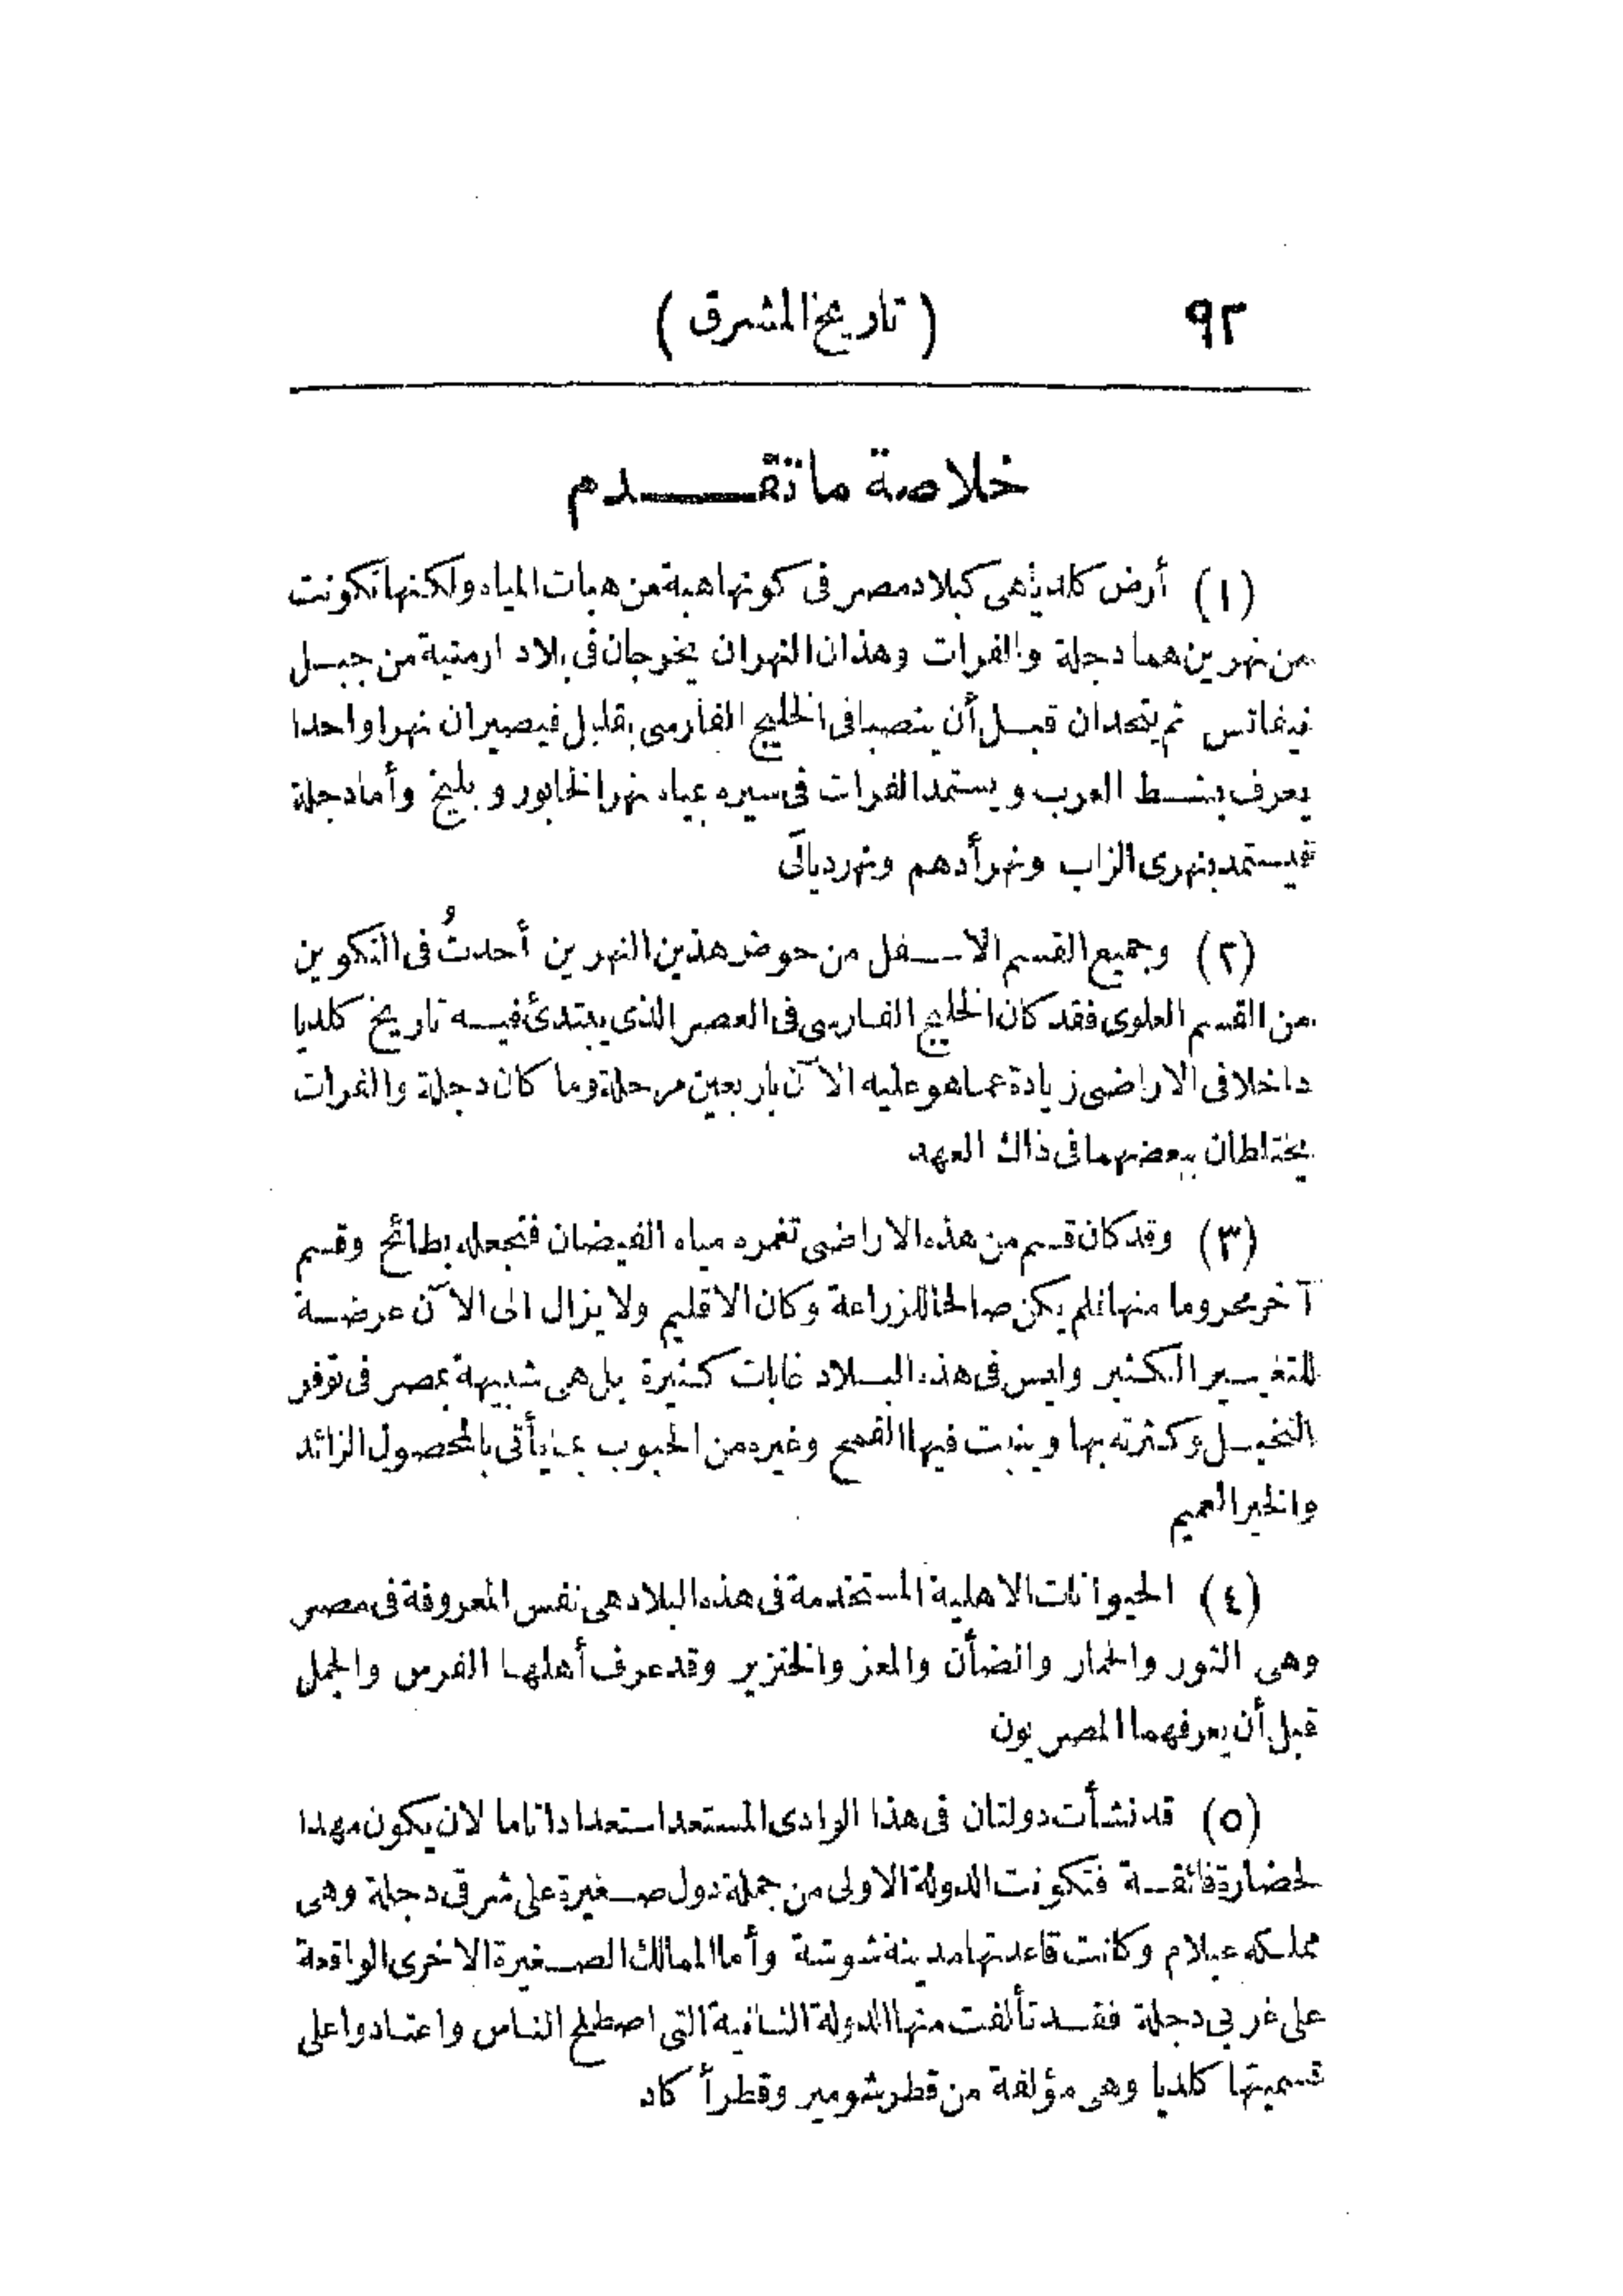 ٩٢ ( تاريخ المشرق )
خلاصة ماتقدم
(١) أرض كلديا هى كبلاد مصر فى كونها هبة من هبات المياه ولكنها تكونت
من نهرين هما دجلة والفرات وهذان النهران يخرجان فى بلاد ارمنية من جبل
نيفاتس ثم يتحدان قبل أن ينصبا فى الخليج الفارسى بقليل فيصيران نهرا واحدا
يعرف بشط العرب ويستمد الفرات فى سيره بمياه نهر الخابور و بليخ وأما دجلة
فيستمد بنهرى الزاب ونهر أدهم ونهر ديالَى
(٢) وجميع القسم الاسفل من حوض هذين النهرين أحدثُ فى التكوين
من القسم العلوى فقد كان الخليج الفارسى فى العصر الذى يبتدئ فيه تاريخ كلديا
داخلا فى الاراضى زيادة عما هو عليه الآن باربعين مرحلة وما كان دجلة والفرات
يختلطان ببعضهما فى ذاك العهد
(٣) وقد كان قسم من هذه الاراضى تغمره مياه الفيضان فتجعله بطائح وقسم
آخر محروما منها فلم يكن صالحا للزراعة وكان الاقليم ولا يزال الى الآن عرضة
للتغيير الكثير وليس فى هذه البلاد غابات كثيرة بل هى شبيهة بمصر فى توفر
النخيل وكثرته بها وينبت فيها القمح وغيره من الحبوب بما يأتى بالمحصول الزائد
والخير العميم
(٤) الحيوانات الاهلية المستخدمة فى هذه البلاد هى نفس المعروفة فى مصر
وهى الثور والحمار والضأن والمعز والخنزير وقد عرف أهلها الفرس والجمل
قبل أن يعرفهما المصريون
(٥) قد نشأت دولتان فى هذا الوادى المستعد استعدادا تاما لان يكون مهدا
لحضارة فائقة فتكونت الدولة الاولى من جملة دول صغيرة على شرقى دجلة وهى
مملكه عيلام وكانت قاعدتها مدينة شوشة وأما الممالك الصغيرة الاخرى الواقعة
على غربى دجلة فقد تألفت منها الدولة الثانية التى اصطلح الناس واعتادوا على
تسميتها كلديا وهى مؤلفة من قطر شومير وقطر أكاد